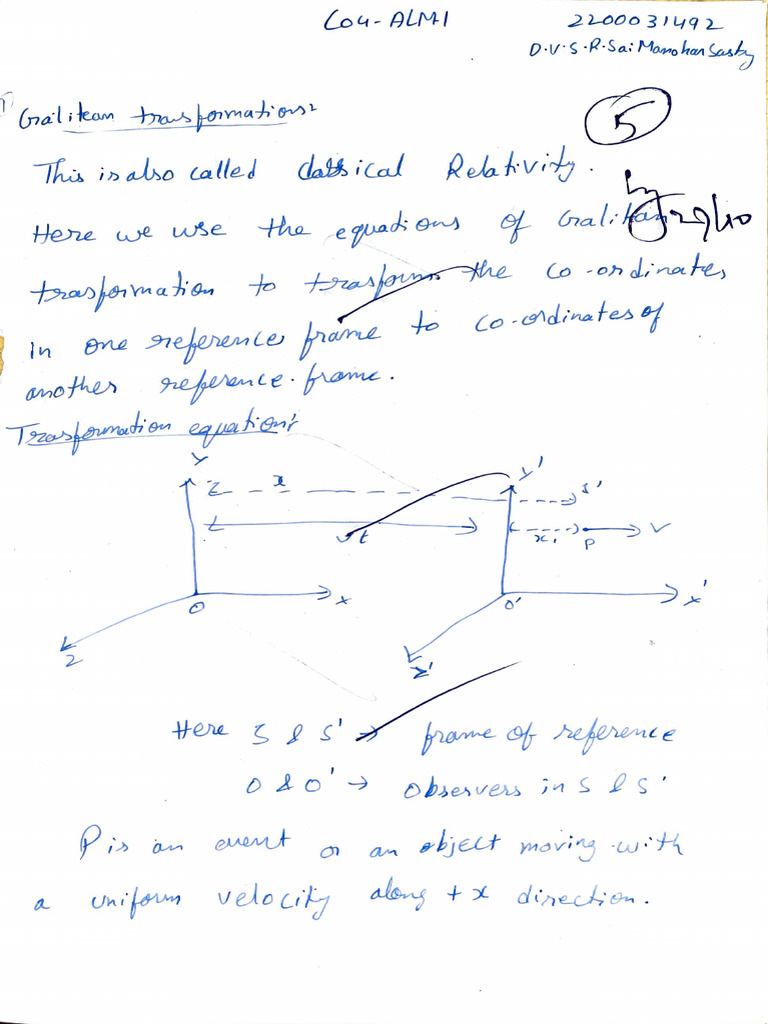 CO4-ALM1
2200031492
D.V.S.R.Sai Manohar Sastry
1) Galilean transformations:
5
This is also called classical Relativity.
Here we use the equations of Galilean
29/10
trasformation to trasform the co-ordinates
in one reference frame to co-ordinates of
another reference frame.
Trasformation equation:
Y
Y'
x
S'
vt
x'
P
V
O
X
O'
X'
Z
Z'
Here S & S' → frame of reference
O & O' → observers in S & S'
P is an event or an object moving with
a uniform velocity along +x direction.